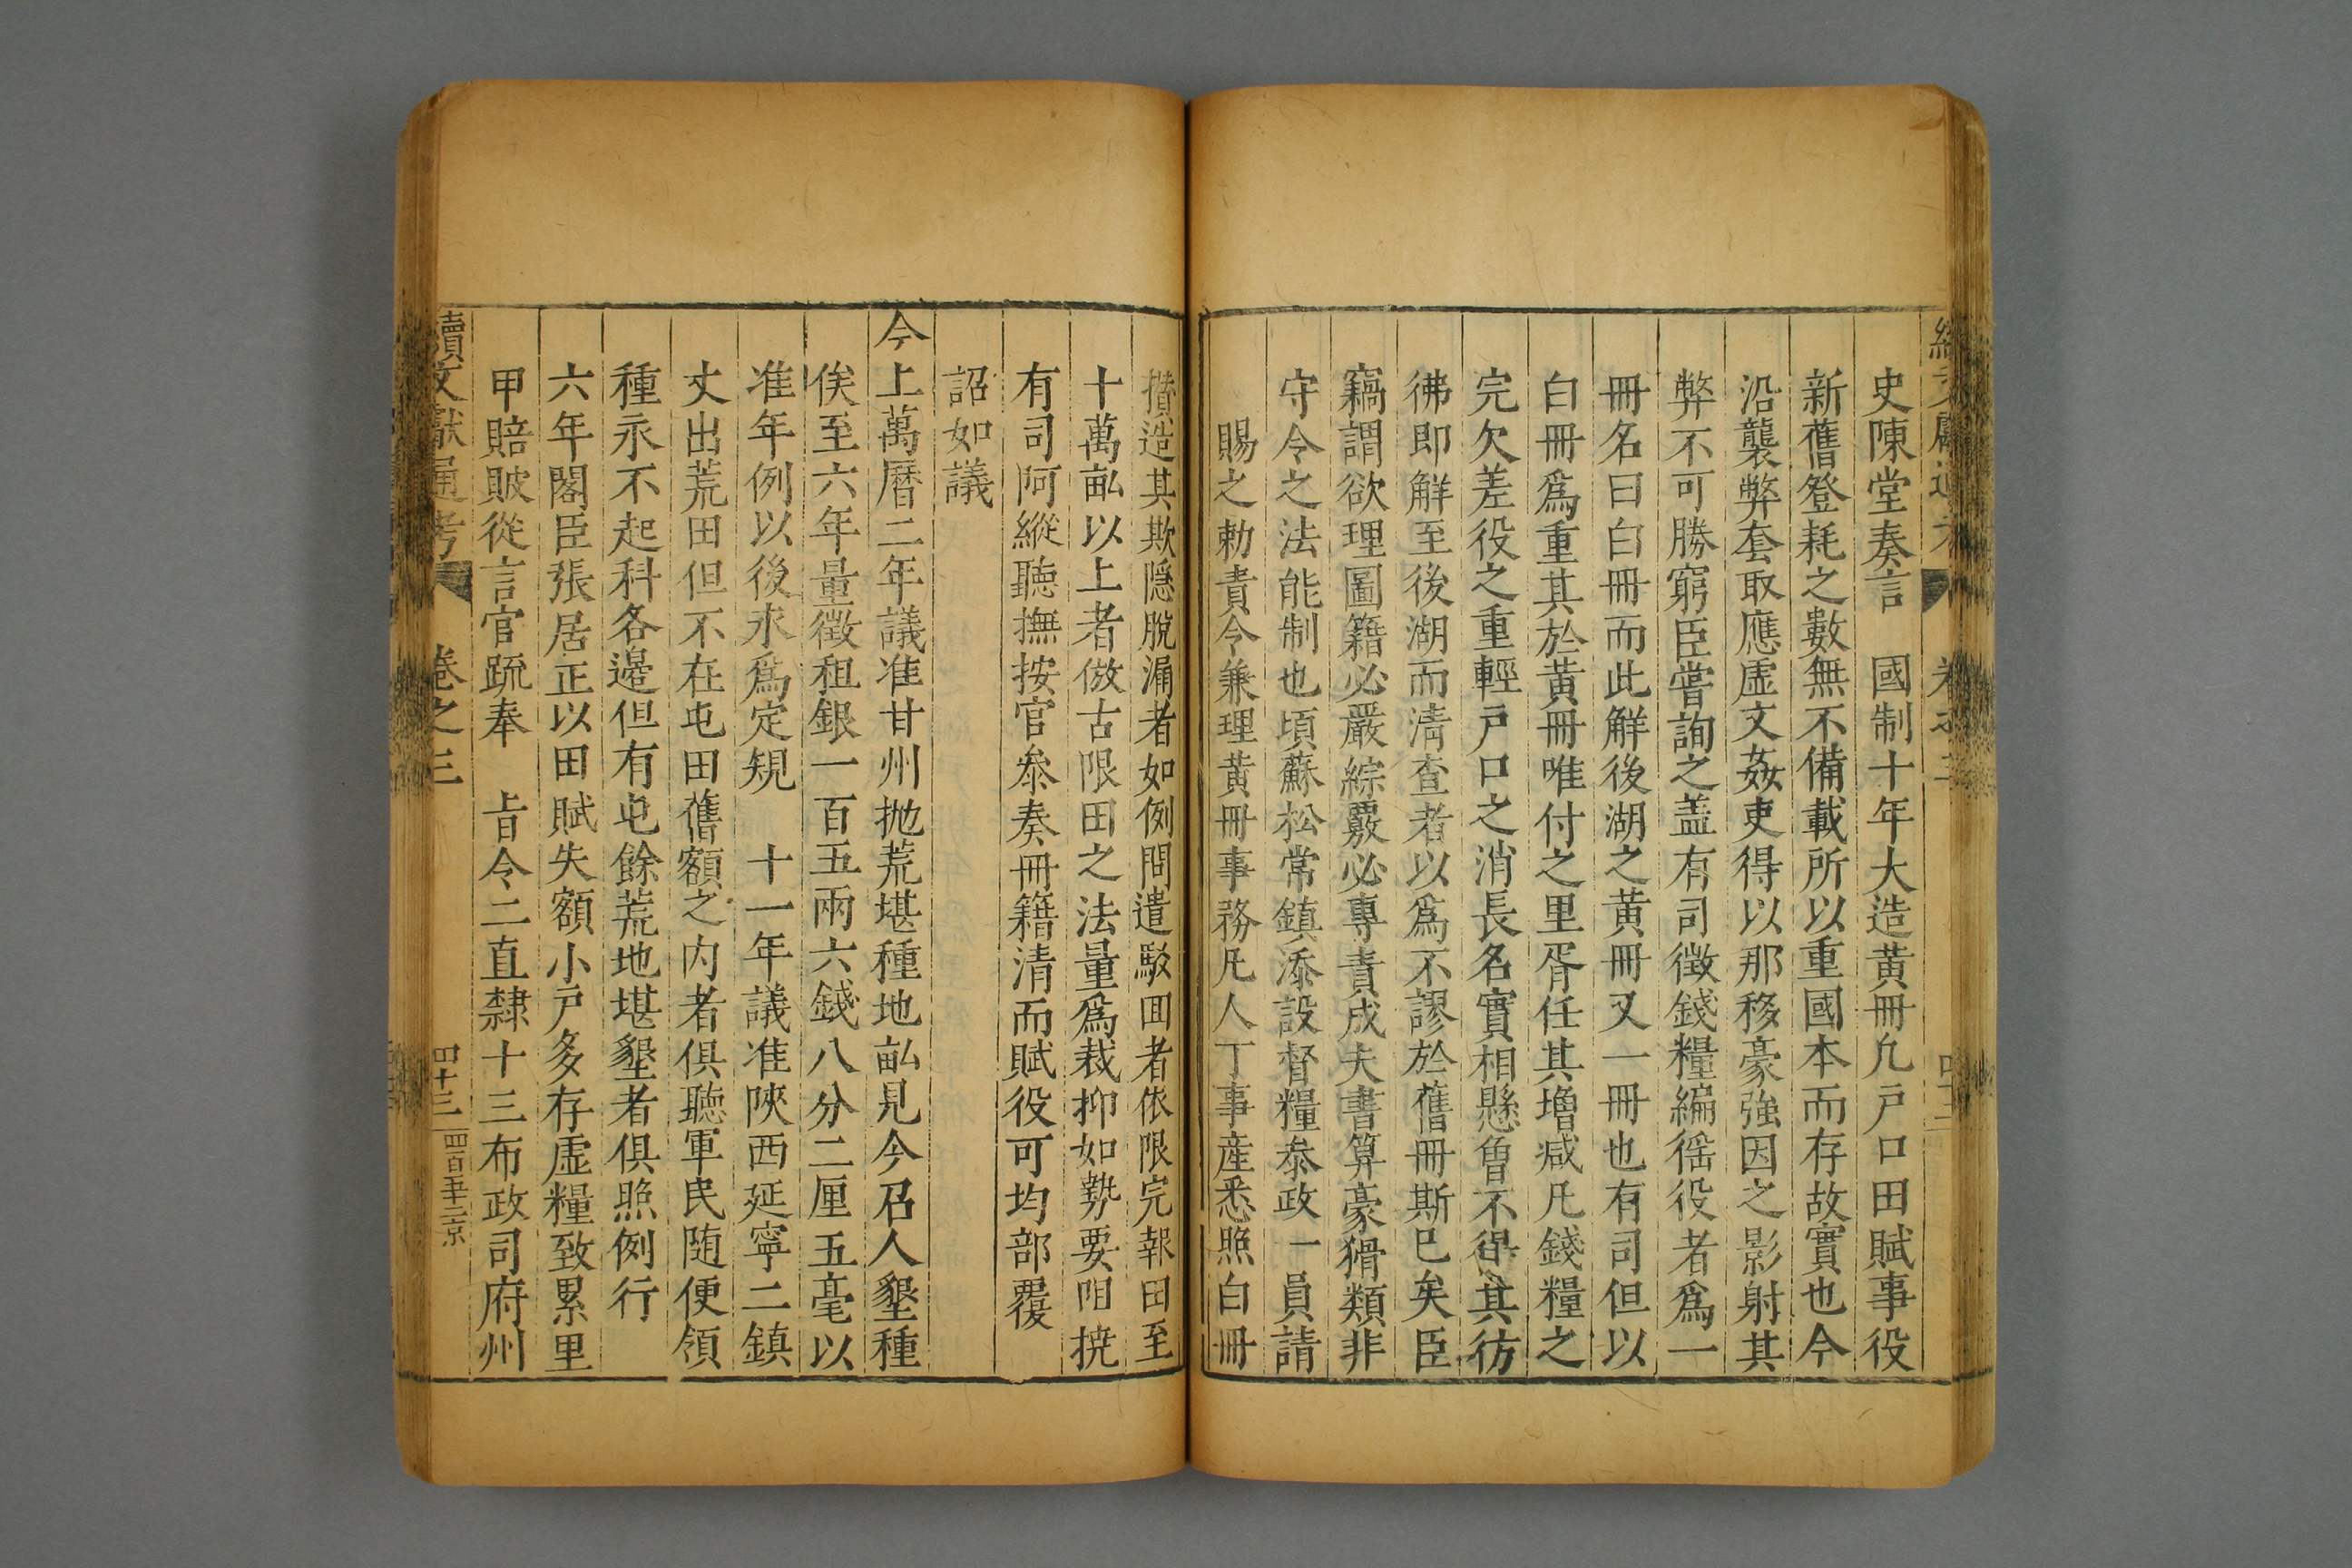 史陳堂奏言　國制十年大造黃冊凢戶口田賦事役
新舊登耗之數無不備載所以重國本而存故實也今
沿襲弊套取應虛文姦吏得以那移豪強因之影射其
弊不可勝窮臣嘗詢之盖有司徵錢糧編徭役者爲一
冊名曰白冊而此解後湖之黃冊又一冊也有司但以
白冊爲重其於黃冊唯付之里胥任其增减凡錢糧之
完欠差役之重輕戶口之消長名實相懸曾不得其彷
彿即解至後湖而清查者以爲不謬於舊冊斯巳矣臣
竊謂欲理圖籍必嚴綜覈必專責成夫書算豪猾類非
守令之法能制也頃蘇松常鎮添設督糧叅政一員請
賜之勅責令兼理黃冊事務凡人丁事產悉照白冊
攅造其欺隱脫漏者如例問遣駁囬者依限完報田至
十萬畆以上者倣古限田之法量爲裁抑如勢要阻撓
有司阿縱聽撫按官叅奏冊籍清而賦役可均部覆
詔如議
今上萬曆二年議准甘州抛荒堪種地畆見今召人墾種
俟至六年量徵租銀一百五兩六錢八分二厘五毫以
准年例以後永爲定規　十一年議准陝西延寧二鎮
丈出荒田但不在屯田舊額之内者俱聽軍民随便領
種永不起科各邊但有屯餘荒地堪墾者俱照例行
六年閣臣張居正以田賦失額小戶多存虛糧致累里
甲賠貱從言官䟽奉　㫖令二直隸十三布政司府州
續文獻通考　卷之三　四十三　四百五十三京